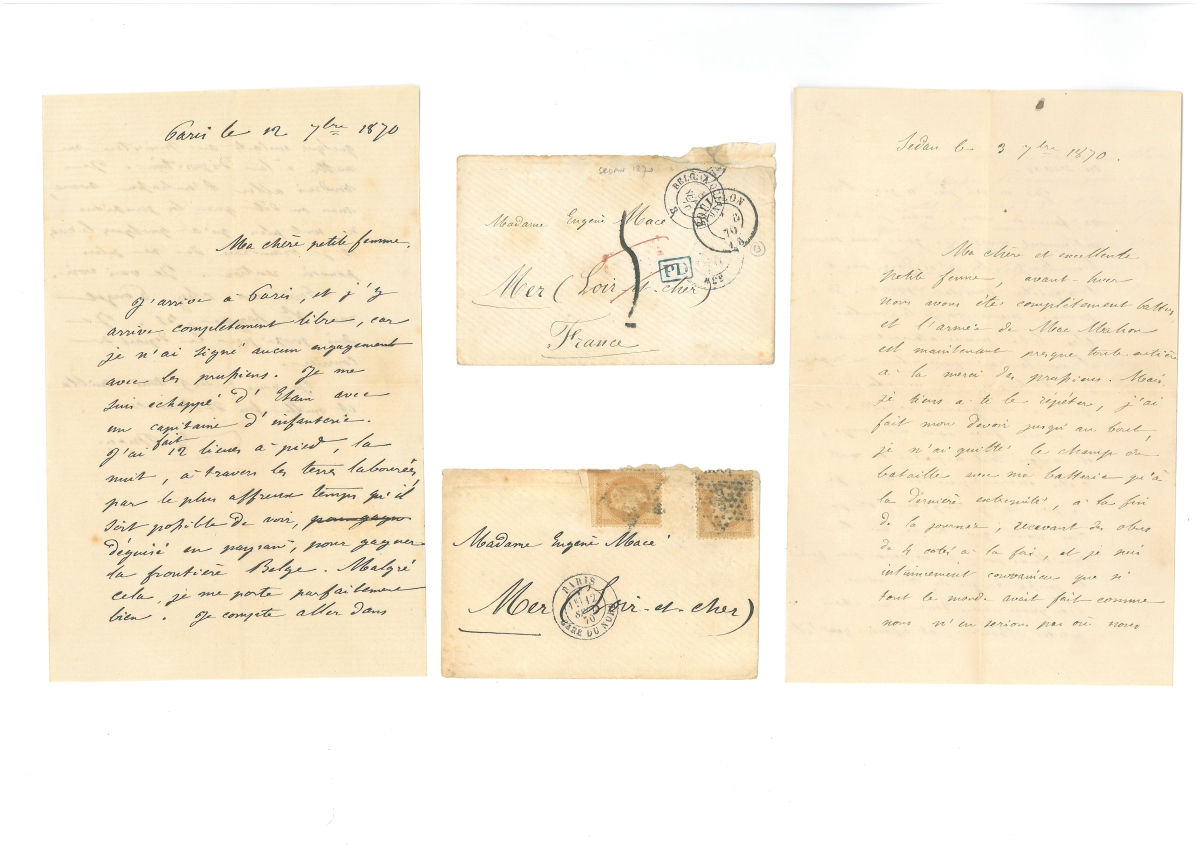 Paris le 12 7bre 1870
Ma chère petite femme,
J'arrive à Paris, et j'y
arrive complètement libre, car
je n'ai signé aucun engagement
avec les prussiens. Je me
suis echappé d'Etain avec
un capitaine d'infanterie.
J'ai fait 12 lieues à pied, la
nuit, à travers les terres labourées
par le plus affreux temps qu'il
soit possible de voir, pour gagner
déguisé en paysant, pour gagner
la frontière Belge. Malgré
cela, je me porte parfaitement
bien. Je compte aller dans
SEDAN 1870
BELG.
BOUILLON
5
70
Madame Eugène Macé
5
PD
Mer (Loir-et-cher)
France
Madame Eugène Macé
PARIS
12
SEPT
70
GARE DU NORD
Mer (Loir-et-cher)
Sedan le 3 7bre 1870.
Ma chère et excellente
petite femme, avant-hier
nous avons été complètement battus
et l'armée de Mac Mahon
est maintenant presque toute entière
à la merci des prussiens. Mais
je tiens à te le répéter, j'ai
fait mon devoir jusqu'au bout,
je n'ai quitté le champ de
bataille avec ma batterie qu'à
la dernière extrémité, à la fin
de la journée, recevant des obus
de 4 cotés à la fois, et je suis
intimement convaincu que si
tout le monde avait fait comme
nous n'en serions pas où nous